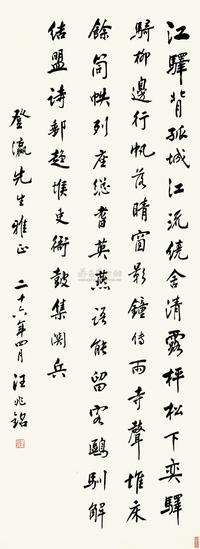 江驛背孤城江流繞舍清露枰松下奕驛
騎柳邊行帆落晴窗影鐘傳兩寺聲堆床
餘簡帙列座總耆英燕語能留客鷗馴解
結盟诗郵趍候吏衙鼓集關兵
登瀛先生雅正 二十六年四月 汪兆銘